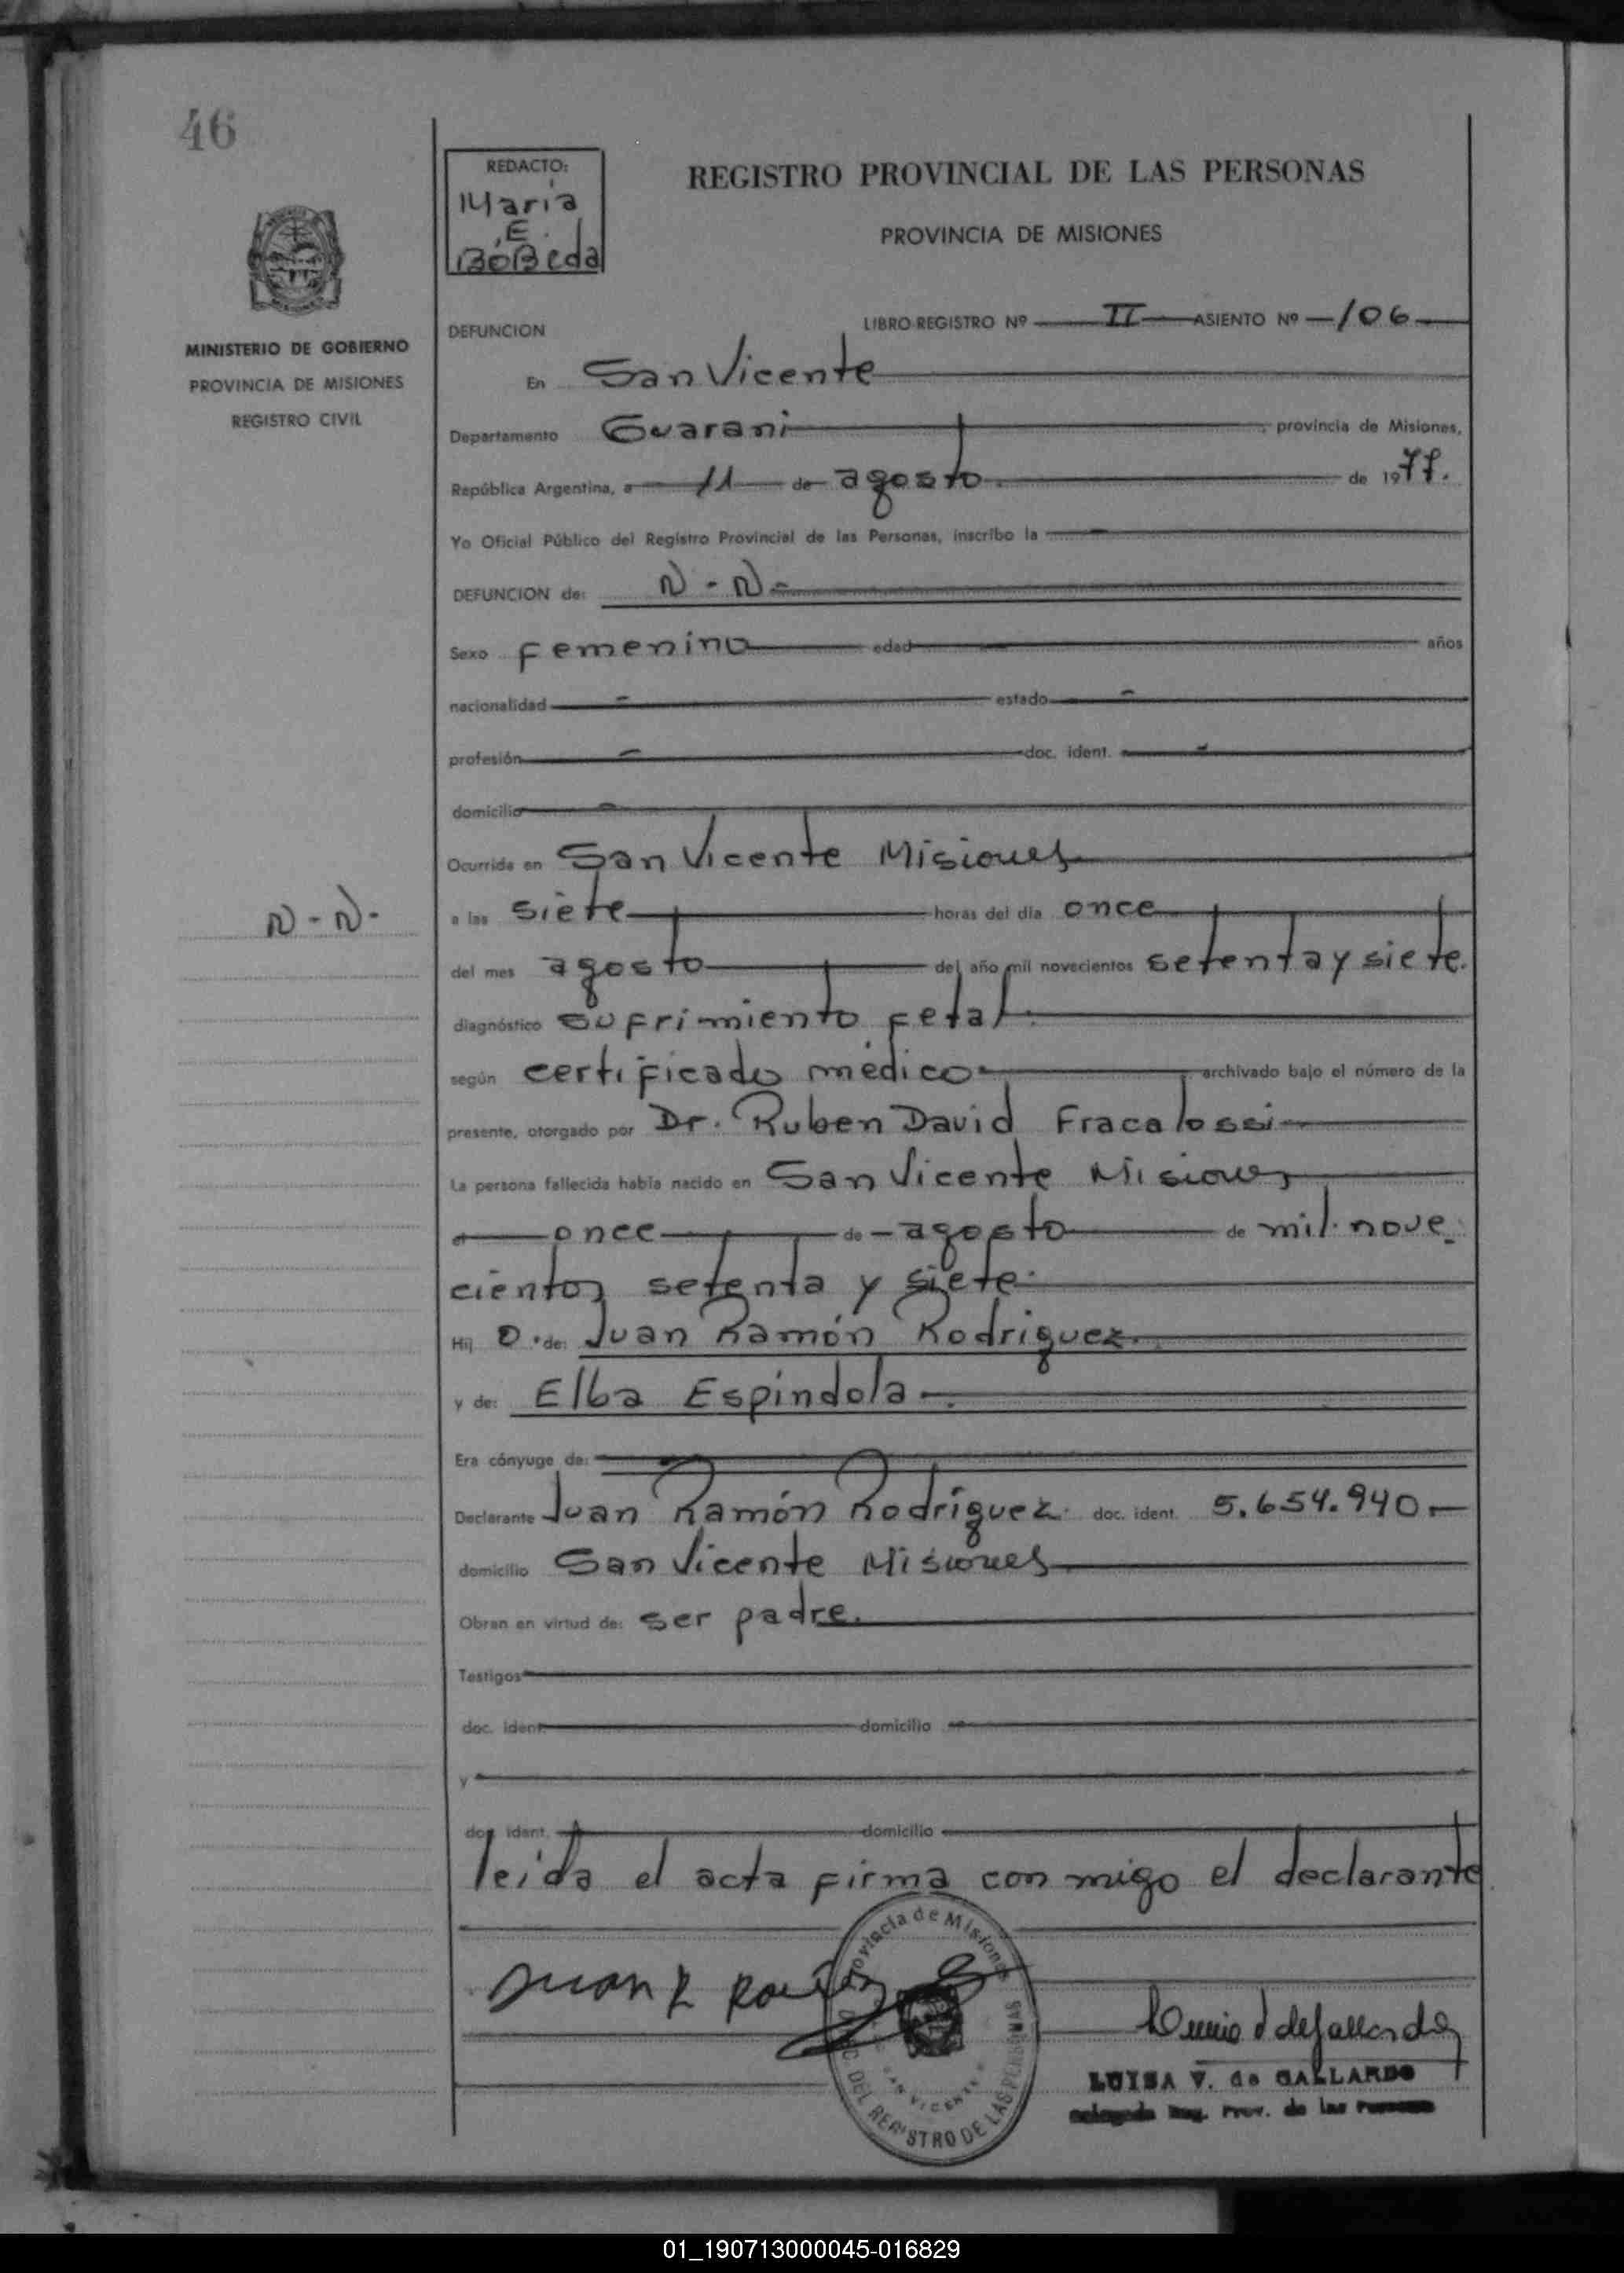 46
REDACTO:
María
E.
BóBeda
REGISTRO PROVINCIAL DE LAS PERSONAS
PROVINCIA DE MISIONES
MINISTERIO DE GOBIERNO
PROVINCIA DE MISIONES
REGISTRO CIVIL
DEFUNCION
LIBRO REGISTRO Nº II ASIENTO Nº 106
En San Vicente
Departamento Guarani provincia de Misiones,
República Argentina, a 11 de agosto de 1977.
Yo Oficial Público del Registro Provincial de las Personas, inscribo la
DEFUNCION de: N - N -
Sexo femenino edad años
nacionalidad estado
profesión doc. ident.
domicilio
Ocurrida en San Vicente Misiones
N - N -
a las siete horas del día once
del mes agosto del año mil novecientos setenta y siete.
diagnóstico sufrimiento fetal.
según certificado médico archivado bajo el número de la
presente, otorgado por Dr. Ruben David Fracalossi
La persona fallecida había nacido en San Vicente Misiones
el once de agosto de mil nove
cientos setenta y siete.
Hij o de: Juan Ramón Rodriguez.
y de: Elba Espindola
Era cónyuge de:
Declarante Juan Ramón Rodríguez. doc. ident. 5.654.940.-
domicilio San Vicente Misiones
Obran en virtud de: ser padre.
Testigos
doc. ident. domicilio
y
doc. ident. domicilio
leida el acta firma con migo el declarante
Juan R
Provincia de Misiones
DEL REGISTRO DE LAS PERSONAS
SAN VICENTE
de Gallardo
LUISA V. de GALLARDO
Delegada Reg. Prov. de las Personas
01_190713000045-016829